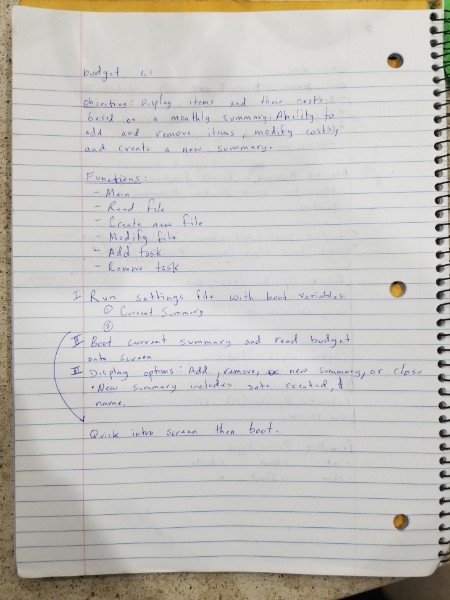 budget 1.1
Objective: Display items and their costs
based on a monthly summary. Ability to
add and remove items, modify costs,
and create a new summary.
Functions:
- Main
- Read file
- Create new file
- Modify file
- Add task
- Remove task
I Run settings file with boot variables
① Current Summary
②
II Boot current summary and read budget
onto screen
II Display options: Add, remove, new summary, or close
• New summary includes date created, &
name.
Quick intro screen then boot.